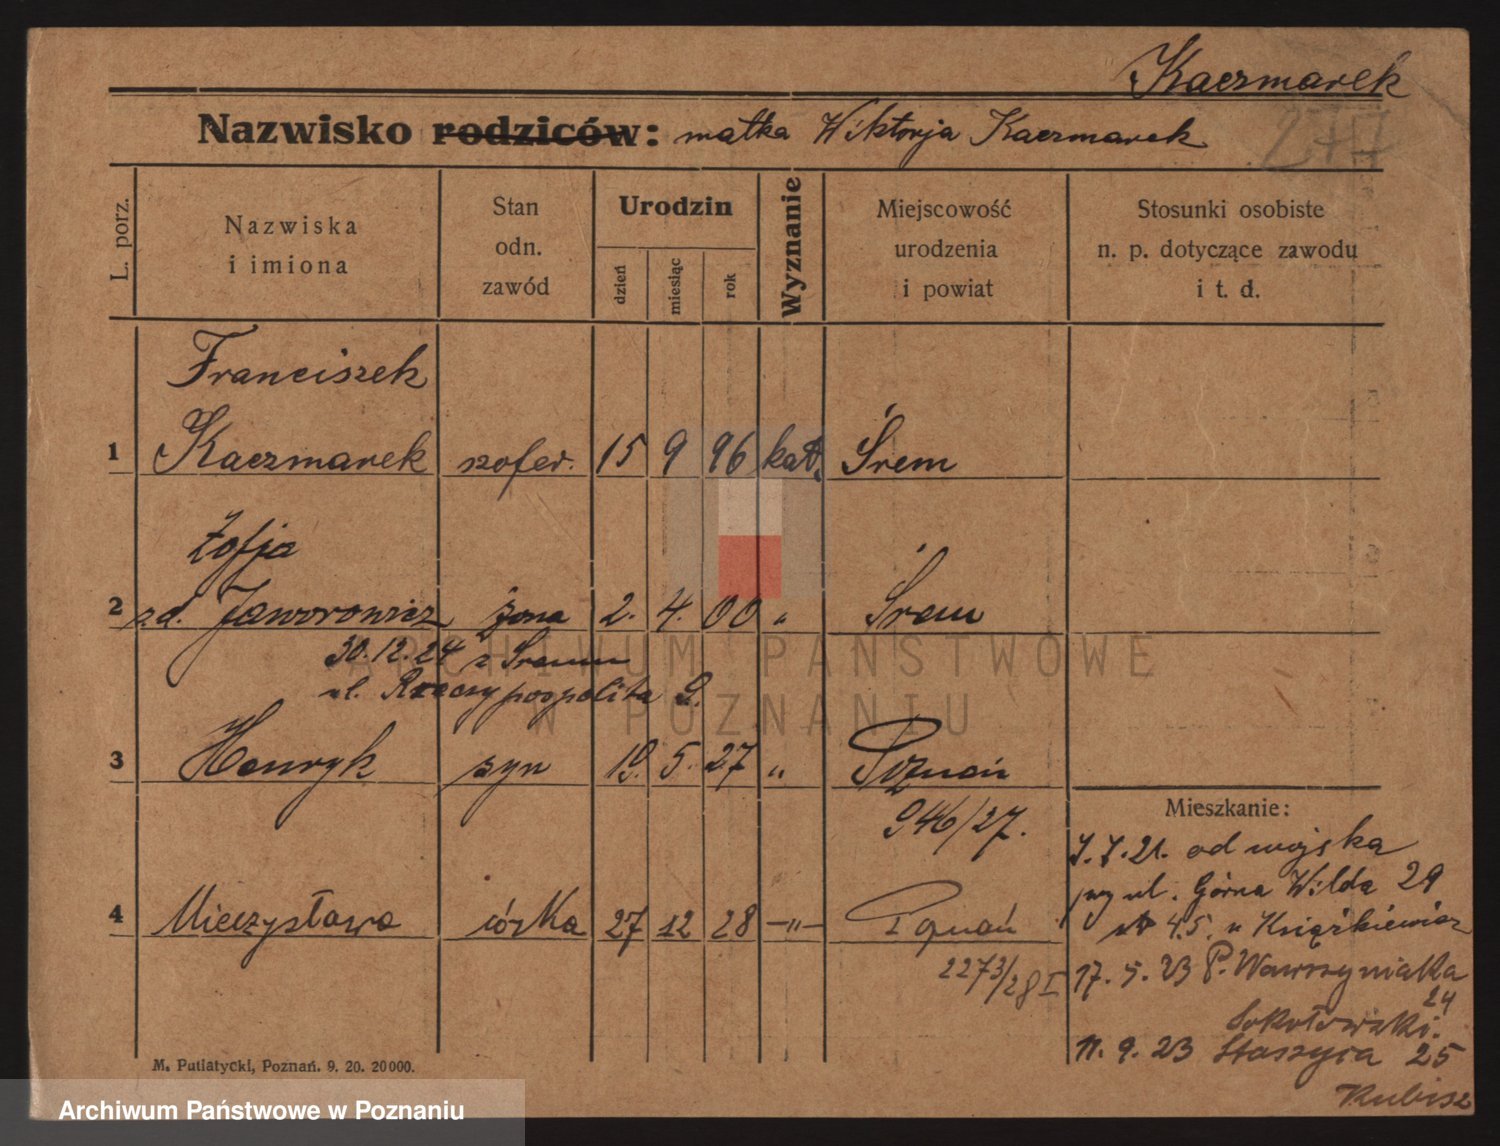 Kaczmarek
Nazwisko rodziców: matka Wiktorja Kaczmarek
277
L. porz.
Nazwiska
i imiona
Stan
odn.
zawód
Urodzin
dzień
miesiąc
rok
Wyznanie
Miejscowość
urodzenia
i powiat
Stosunki osobiste
n. p. dotyczące zawodu
i t. d.
Franciszek
1 Kaczmarek szofer. 15 9 96 kat. Śrem
Zofja
2 z d. Jaworowicz żona 2. 4. 00 „ Śrem
30.12.24 z Śremu
ul. Rzeczypospolita 9.
3 Henryk syn 19. 5. 27 „ Poznań
946/27.
4 Mieczysława córka 27 12 28 —„— Poznań
2273/28 I
Mieszkanie:
7.7.21. od wojska
przy ul. Górna Wilda 29
u Książkiewicz
17. 5. 23 P. Wawrzyniaka
24
Sokołowski.
11. 9. 23 Staszyca 25
Kubisz
M. Putiatycki, Poznań. 9. 20. 20000.
ARCHIWUM PAŃSTWOWE
W POZNANIU
Archiwum Państwowe w Poznaniu